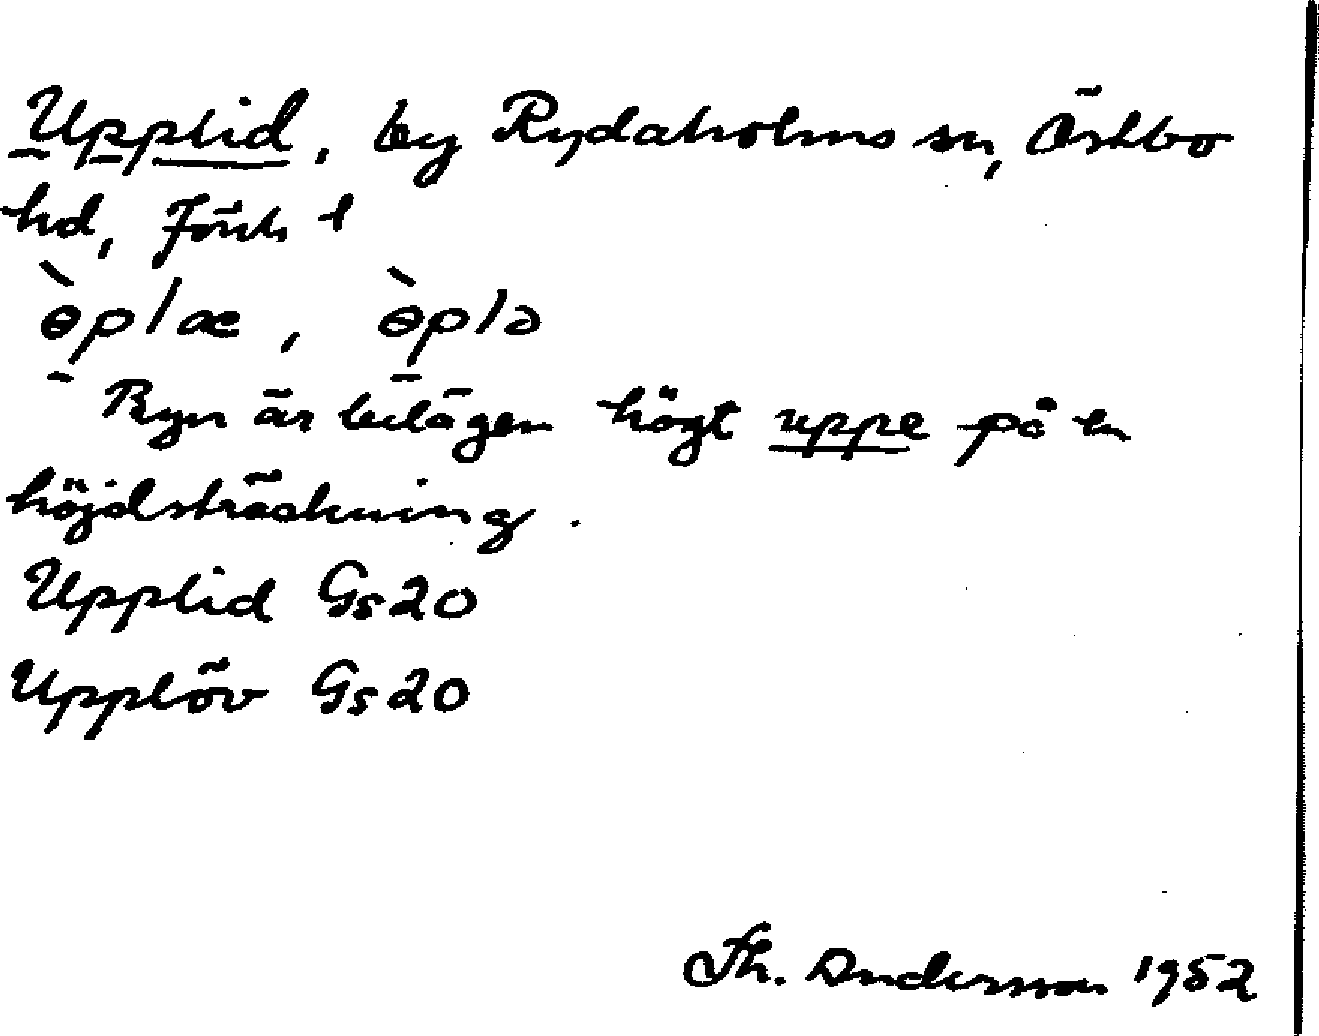 Upplid, by Rydaholms sn, Östbo
hd, Jönk l
ɵ̀plæ, ɵ̀plə
Byn är belägen högt uppe på en
höjdsträckning.
Upplid Gs20
Upplöv Gs20
Th. Andersson 1952